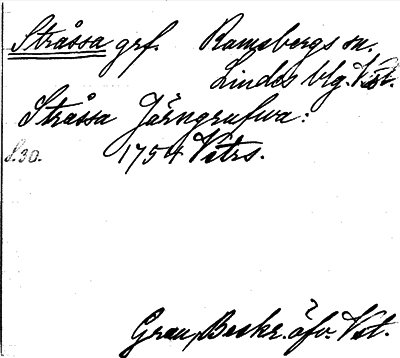 Stråssa grf. Ramsbergs sn.
Lindes blg. Vstl.
Stråssa Järngrufwa:
S. 30. 1754 Vstrs.
Grau, Beskr. öfv. Vstl.